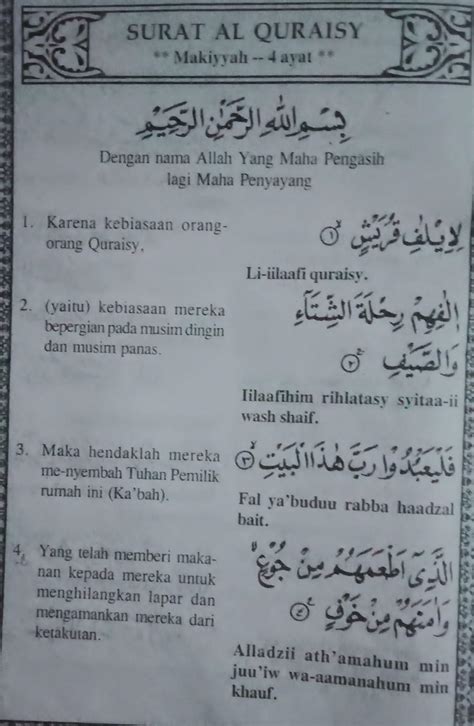 SURAT AL QURAISY
** Makiyyah -- 4 ayat **
بِسْمِ اللهِ الرَّحْمٰنِ الرَّحِيْمِ
Dengan nama Allah Yang Maha Pengasih
lagi Maha Penyayang
1. Karena kebiasaan orang-
orang Quraisy,
لِاِيْلٰفِ قُرَيْشٍ ۙ ١
Li-iilaafi quraisy.
2. (yaitu) kebiasaan mereka
bepergian pada musim dingin
dan musim panas.
اٖلٰفِهِمْ رِحْلَةَ الشِّتَآءِ
وَالصَّيْفِ ۚ ٢
Iilaafihim rihlatasy syitaa-ii
wash shaif.
3. Maka hendaklah mereka
me-nyembah Tuhan Pemilik
rumah ini (Ka'bah).
فَلْيَعْبُدُوْا رَبَّ هٰذَا الْبَيْتِ ۙ ٣
Fal ya'buduu rabba haadzal
bait.
4. Yang telah memberi maka-
nan kepada mereka untuk
menghilangkan lapar dan
mengamankan mereka dari
ketakutan.
الَّذِيْٓ اَطْعَمَهُمْ مِنْ جُوْعٍ ۙ
وَاٰمَنَهُمْ مِنْ خَوْفٍ ۚ ٤
Alladzii ath'amahum min
juu'iw wa-aamanahum min
khauf.